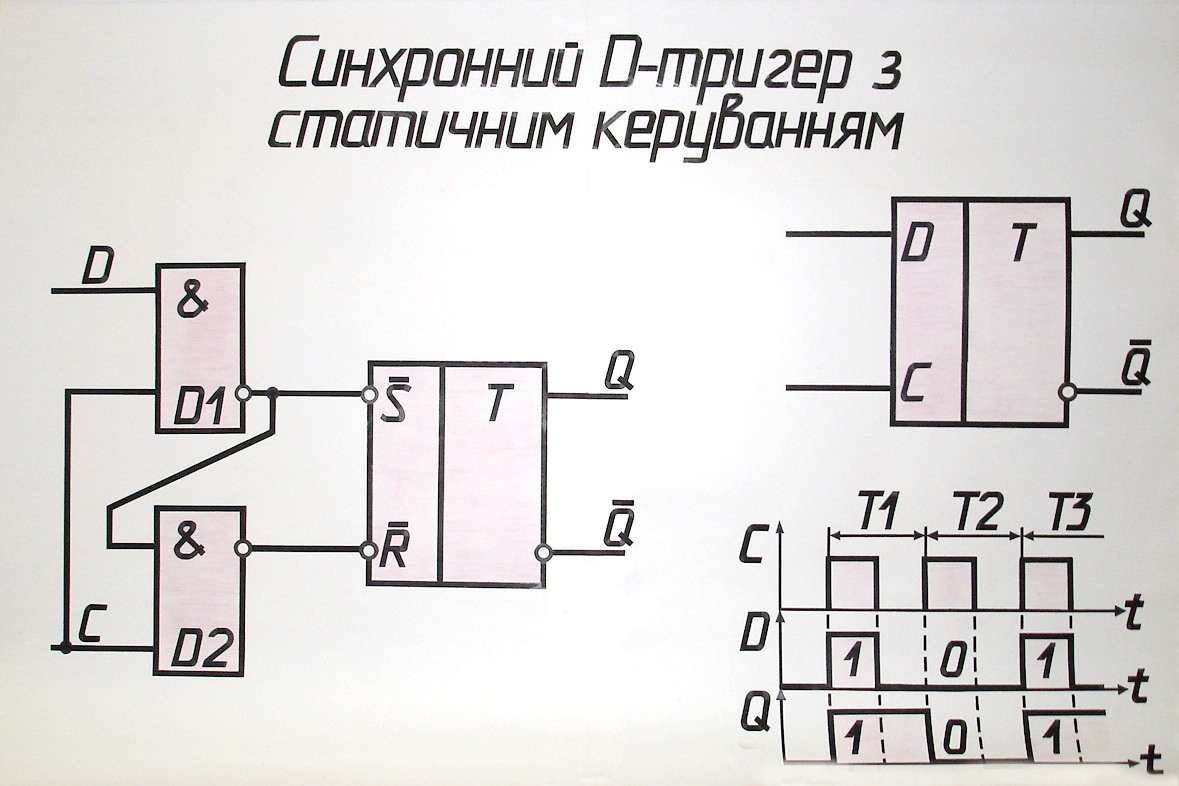 Синхронний D-тригер з
статичним керуванням
D
&
D1
C
&
D2
S̅
R̅
T
Q
Q̅
D
C
T
Q
Q̅
T1 T2 T3
C
t
D
1 0 1
t
Q
1 0 1
t